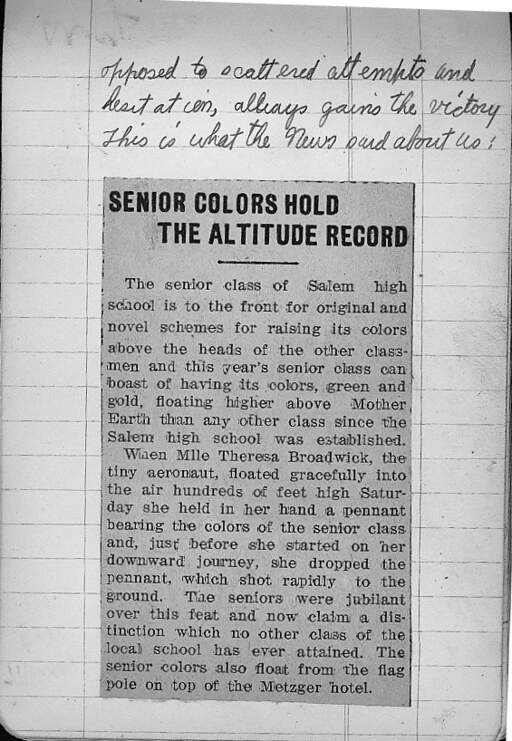 opposed to scattered attempts and
hesitation, always gains the victory
This is what the News said about us:
SENIOR COLORS HOLD
THE ALTITUDE RECORD
The senior class of Salem high
school is to the front for original and
novel schemes for raising its colors
above the heads of the other class-
men and this year's senior class can
boast of having its colors, green and
gold, floating higher above Mother
Earth than any other class since the
Salem high school was established.
When Mlle Theresa Broadwick, the
tiny aeronaut, floated gracefully into
the air hundreds of feet high Satur-
day she held in her hand a pennant
bearing the colors of the senior class
and, just before she started on her
downward journey, she dropped the
pennant, which shot rapidly to the
ground. The seniors were jubilant
over this feat and now claim a dis-
tinction which no other class of the
local school has ever attained. The
senior colors also float from the flag
pole on top of the Metzger hotel.